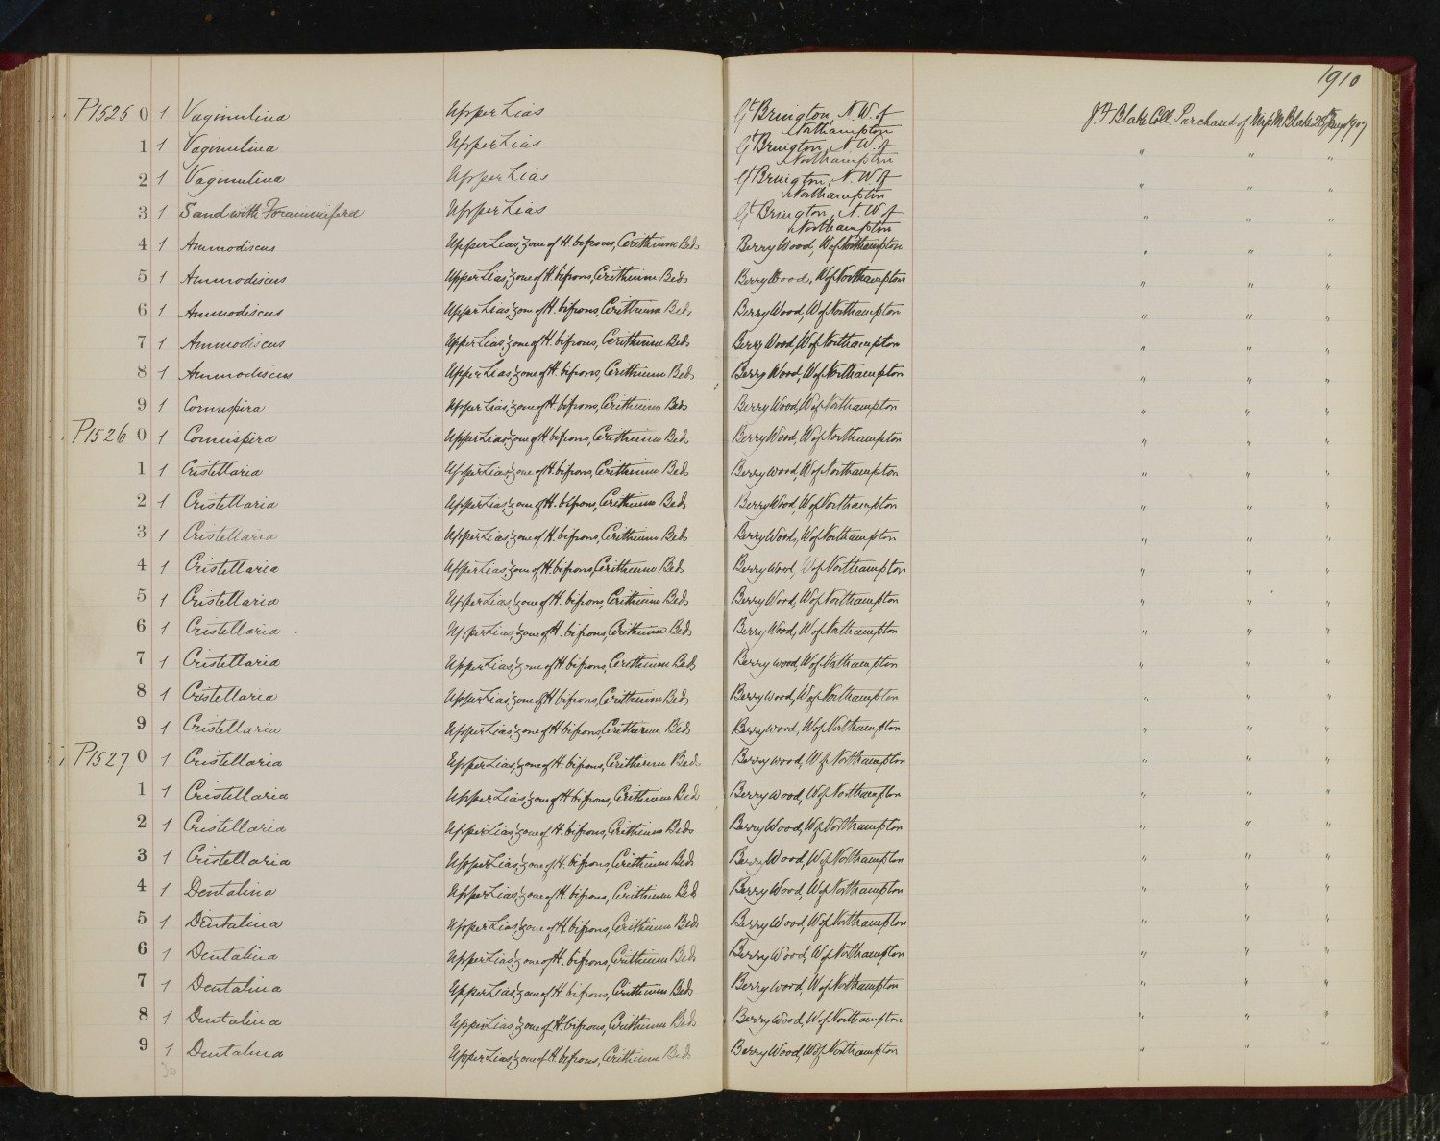 1910
P1525 0 1 Vaginulina Upper Lias Gt Brington, N.W. of Northampton J.F. Blake Coll. Purchased of Mrs M. Blake Aug 1907
1 1 Vaginulina Upper Lias Gt Brington, N.W. of Northampton " " "
2 1 Vaginulina Upper Lias Gt Brington, N.W. of Northampton " " "
3 1 Sand with Foraminifera Upper Lias Gt Brington, N.W. of Northampton " " "
4 1 Ammodiscus Upper Lias, zone of H. bifrons, Cerithium Beds Berry Wood, W of Northampton " " "
5 1 Ammodiscus Upper Lias, zone of H. bifrons, Cerithium Beds Berry Wood, W of Northampton " " "
6 1 Ammodiscus Upper Lias, zone of H. bifrons, Cerithium Beds Berry Wood, W of Northampton " " "
7 1 Ammodiscus Upper Lias, zone of H. bifrons, Cerithium Beds Berry Wood, W of Northampton " " "
8 1 Ammodiscus Upper Lias, zone of H. bifrons, Cerithium Beds Berry Wood, W of Northampton " " "
9 1 Cornuspira Upper Lias, zone of H. bifrons, Cerithium Beds Berry Wood, W of Northampton " " "
P1526 0 1 Cornuspira Upper Lias, zone of H. bifrons, Cerithium Beds Berry Wood, W of Northampton " " "
1 1 Cristellaria Upper Lias, zone of H. bifrons, Cerithium Beds Berry Wood, W of Northampton " " "
2 1 Cristellaria Upper Lias, zone of H. bifrons, Cerithium Beds Berry Wood, W of Northampton " " "
3 1 Cristellaria Upper Lias, zone of H. bifrons, Cerithium Beds Berry Woods, W of Northampton " " "
4 1 Cristellaria Upper Lias, zone of H. bifrons, Cerithium Beds Berry Wood, W of Northampton " " "
5 1 Cristellaria Upper Lias, zone of H. bifrons, Cerithium Beds Berry Wood, W of Northampton " " "
6 1 Cristellaria Upper Lias, zone of H. bifrons, Cerithium Beds Berry Wood, W of Northampton " " "
7 1 Cristellaria Upper Lias, zone of H. bifrons, Cerithium Beds Berry wood, W of Northampton " " "
8 1 Cristellaria Upper Lias, zone of H. bifrons, Cerithium Beds Berry wood, W of Northampton " " "
9 1 Cristellaria Upper Lias, zone of H. bifrons, Cerithium Beds Berry wood, W of Northampton " " "
P1527 0 1 Cristellaria Upper Lias, zone of H. bifrons, Cerithium Beds Berry wood, W of Northampton " " "
1 1 Cristellaria Upper Lias, zone of H. bifrons, Cerithium Bed Berry wood, W of Northampton " " "
2 1 Cristellaria Upper Lias, zone of H. bifrons, Cerithium Beds Berry Wood, W of Northampton " " "
3 1 Cristellaria Upper Lias, zone of H. bifrons, Cerithium Beds Berry Wood, W of Northampton " " "
4 1 Dentalina Upper Lias, zone of H. bifrons, Cerithium Beds Berry Wood, W of Northampton " " "
5 1 Dentalina Upper Lias, zone of H. bifrons, Cerithium Beds Berry Wood, W of Northampton " " "
6 1 Dentalina Upper Lias, zone of H. bifrons, Cerithium Beds Berry Wood, W of Northampton " " "
7 1 Dentalina Upper Lias, zone of H. bifrons, Cerithium Beds Berry wood, W of Northampton " " "
8 1 Dentalina Upper Lias, zone of H. bifrons, Cerithium Beds Berry Wood, W of Northampton " " "
9 1 Dentalina Upper Lias, zone of H. bifrons, Cerithium Beds Berry Wood, W of Northampton " " "
30